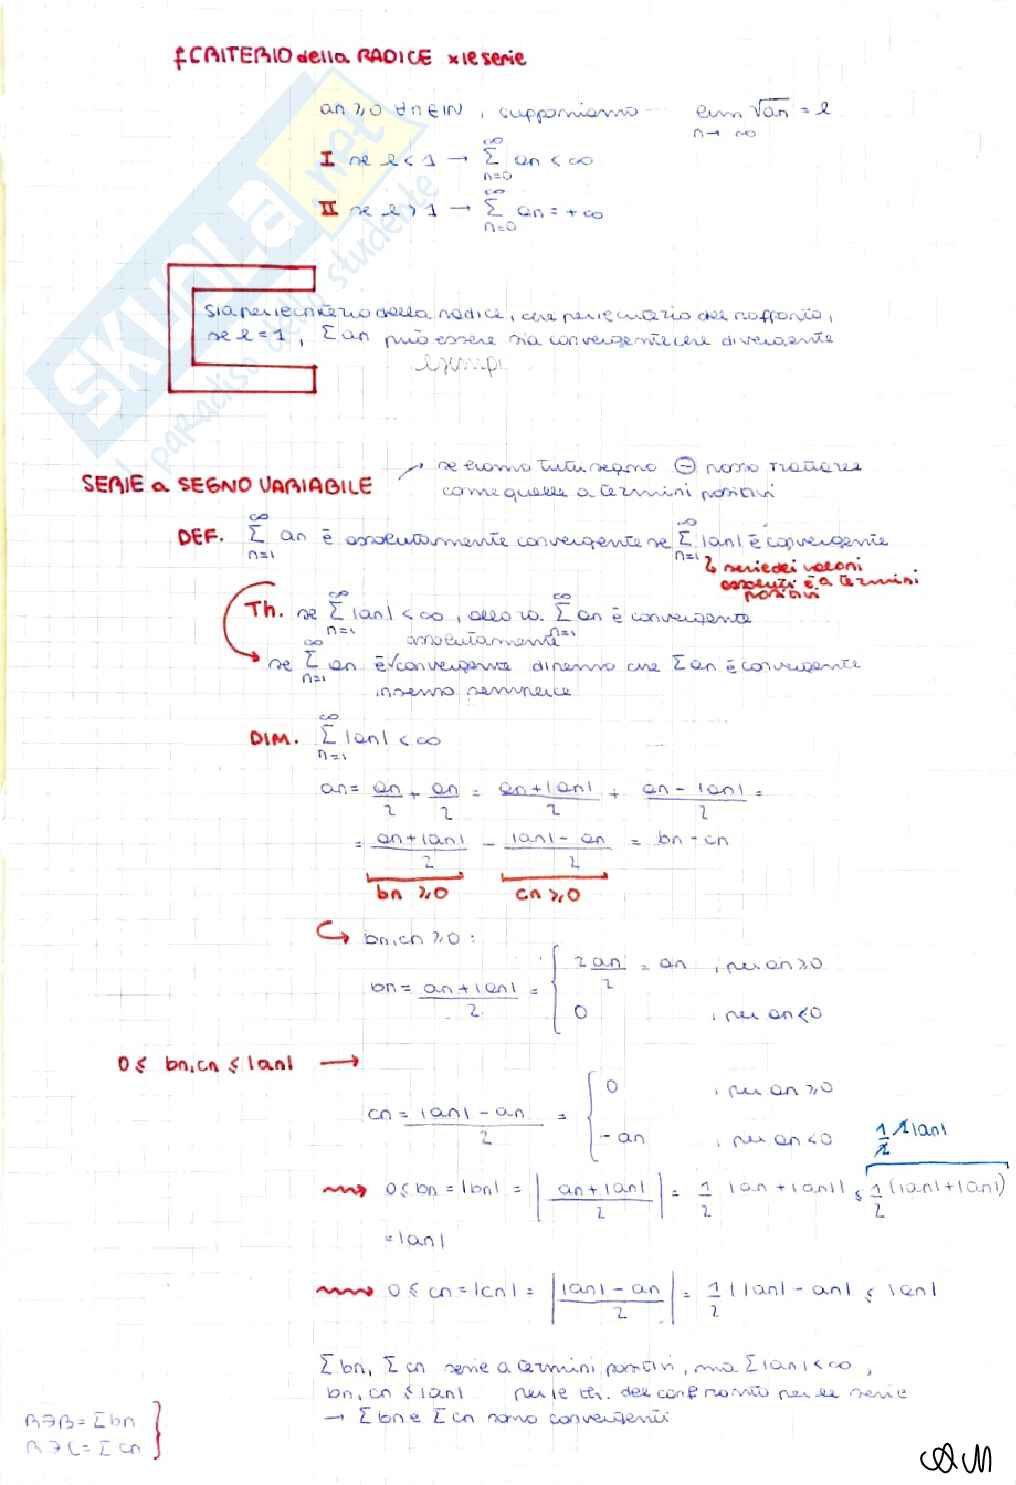 CRITERIO della RADICE x le serie
an ≥ 0 ∀n ∈ IN, supponiamo lim √an = l
n→∞
I se l < 1 → ∞Σn=0 an < ∞
II se l > 1 → ∞Σn=0 an = +∞
sia per il criterio della radice, che per il criterio del rapporto,
se l = 1, Σ an può essere sia convergente che divergente
SKUOLA.net
il paradiso dello studente
SERIE a SEGNO VARIABILE
se erano tutti segno ⊖ posso trattarle
come quelle a termini positivi
DEF. ∞Σn=1 an è assolutamente convergente se ∞Σn=1 |an| è convergente
serie dei valori
assoluti è a termini
positivi
Th. se ∞Σn=1 |an| < ∞, allora ∞Σn=1 an è convergente
assolutamente
se ∞Σn=1 an è convergente diremo che Σ an è convergente
semplice
DIM. ∞Σn=1 |an| < ∞
an = an/2 + an/2 = (an + |an|)/2 + (an - |an|)/2 =
= (an + |an|)/2 - (|an| - an)/2 = bn - cn
bn ≥ 0 cn ≥ 0
bn, cn ≥ 0:
bn = (an + |an|)/2 = { 2an/2 = an , per an ≥ 0
0 , per an < 0
0 ≤ bn, cn ≤ |an| →
cn = (|an| - an)/2 = { 0 , per an ≥ 0
- an , per an < 0
1/2 2|an|
0 ≤ bn = |bn| = |(an + |an|)/2| = 1/2 |an + |an|| ≤ 1/2 (|an| + |an|)
= |an|
0 ≤ cn = |cn| = |(|an| - an)/2| = 1/2 ||an| - an| ≤ |an|
Σ bn, Σ cn serie a termini positivi, ma Σ |an| < ∞,
bn, cn ≤ |an| per le th. del confronto per le serie
→ Σ bn e Σ cn sono convergenti
R ∋ B = Σ bn
R ∋ C = Σ cn